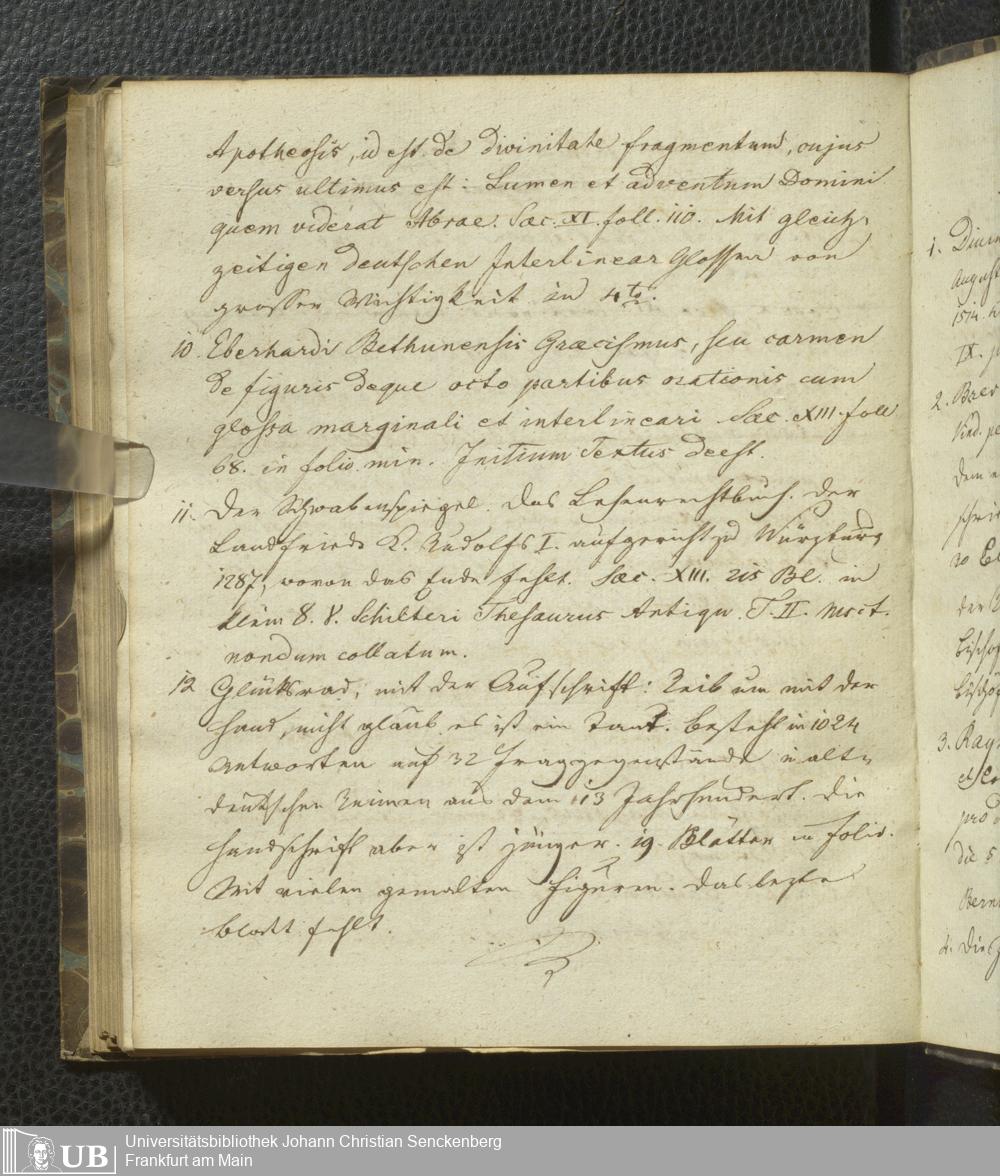 Apotheosis, id est de Divinitate fragmentum, cujus
versus ultimus est: Lumen et adventum Domini
quem viderat Abrae. Sæc. XI. foll. 110. Mit gleich,
zeitigen deutschen Interlinear Glossen von
grosser Wichtigkeit in 4to.
10. Eberhardi Bethunensis Græcismus, seu carmen
de figuris deque octo partibus orationis cum
glossa marginali et interlineari Sæc. XIII. foll
68. in folio min. Initium Textus deest.
11. Der Schwabenspiegel. Das Lehenrechtbuch. Der
Landfrieds K. Rudolfs I. aufgericht zu Würzburg
1287, wovon das Ende fehlt. Sæc. XIII. 215 Bl. in
klein 8. V. Schilteri Thesaurus Antiqu. T. II. Msct.
nondum collatum.
12 Glücksrad, mit der Aufschrift: Treib um mit der
Hand, nicht glaub es ist ein Tant. besteht in 1024
Antworten auf 32 Fraggegenstände in alt-
deutschen Reimen aus dem 13 Jahrhundert. Die
Handschrift aber ist jünger. 19. Blätter in folio.
Mit vielen gemalten Figuren. Das lezte
Blatt fehlt.
1. Divin
August
1514. h
IX. p
2. Brev
Vind. pe
dem
schri
zo
der
Bischof
Bischof
3. Ray
et
pro
die 5
Bern
4. Die
UB
Universitätsbibliothek Johann Christian Senckenberg
Frankfurt am Main